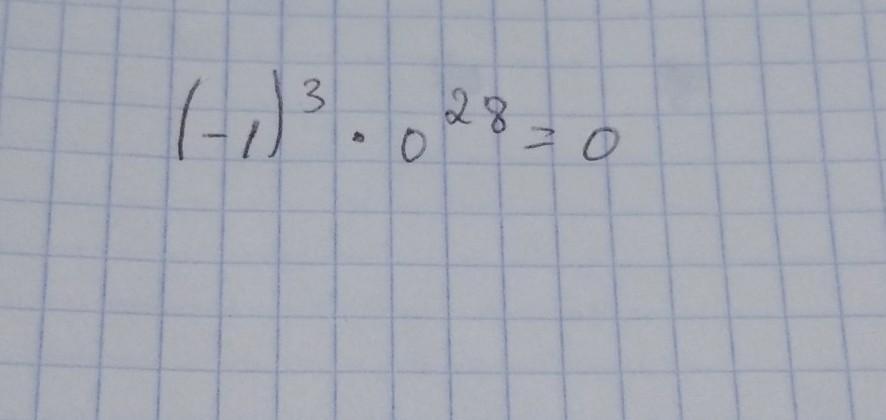 (-1)³ · 0²⁸ = 0